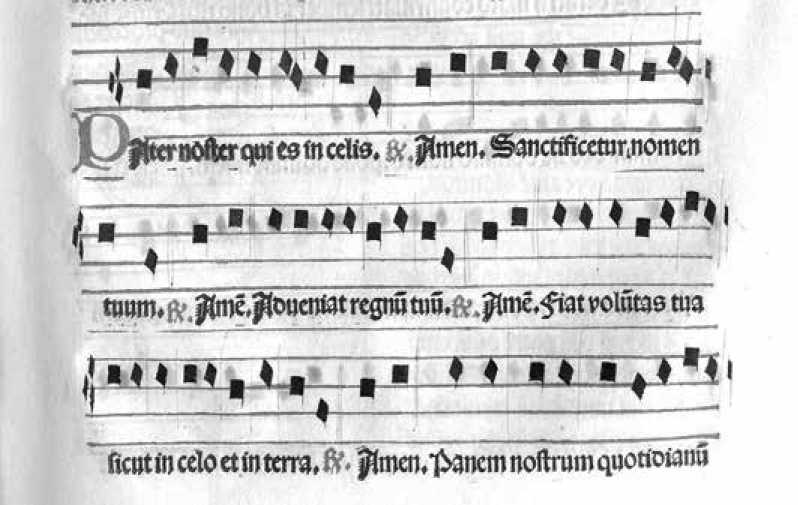 PAter nōster qui es in celis. ℟. Amen. Sanctificetur nomen
tuum. ℟. Amē. Adueniat regnū tuū. ℟. Amē. Fiat volūtas tua
sicut in celo et in terra. ℟. Amen. Panem nostrum quotidianū